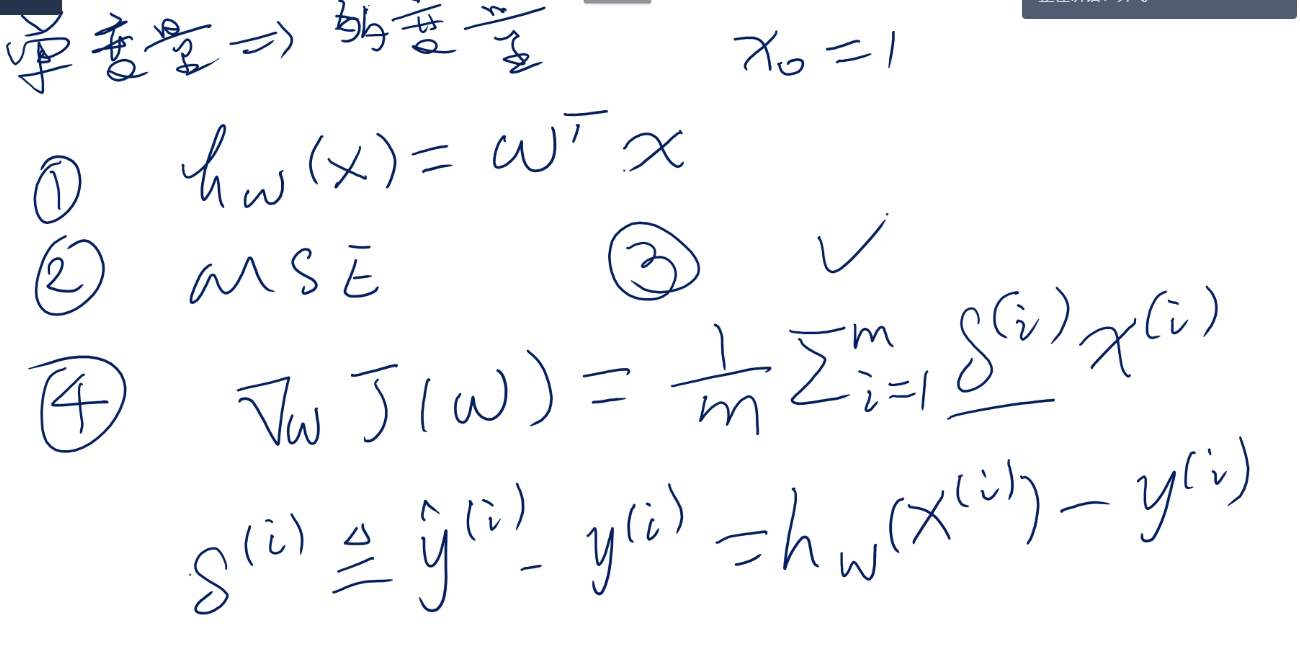 单变量 => 多变量 x₀ = 1
① h_w(x) = w^T x
② MSE ③ ✓
④ ∇_w J(w) = 1/m Σ_{i=1}^m δ^(i) x^(i)
δ^(i) ≜ ŷ^(i) - y^(i) = h_w(x^(i)) - y^(i)